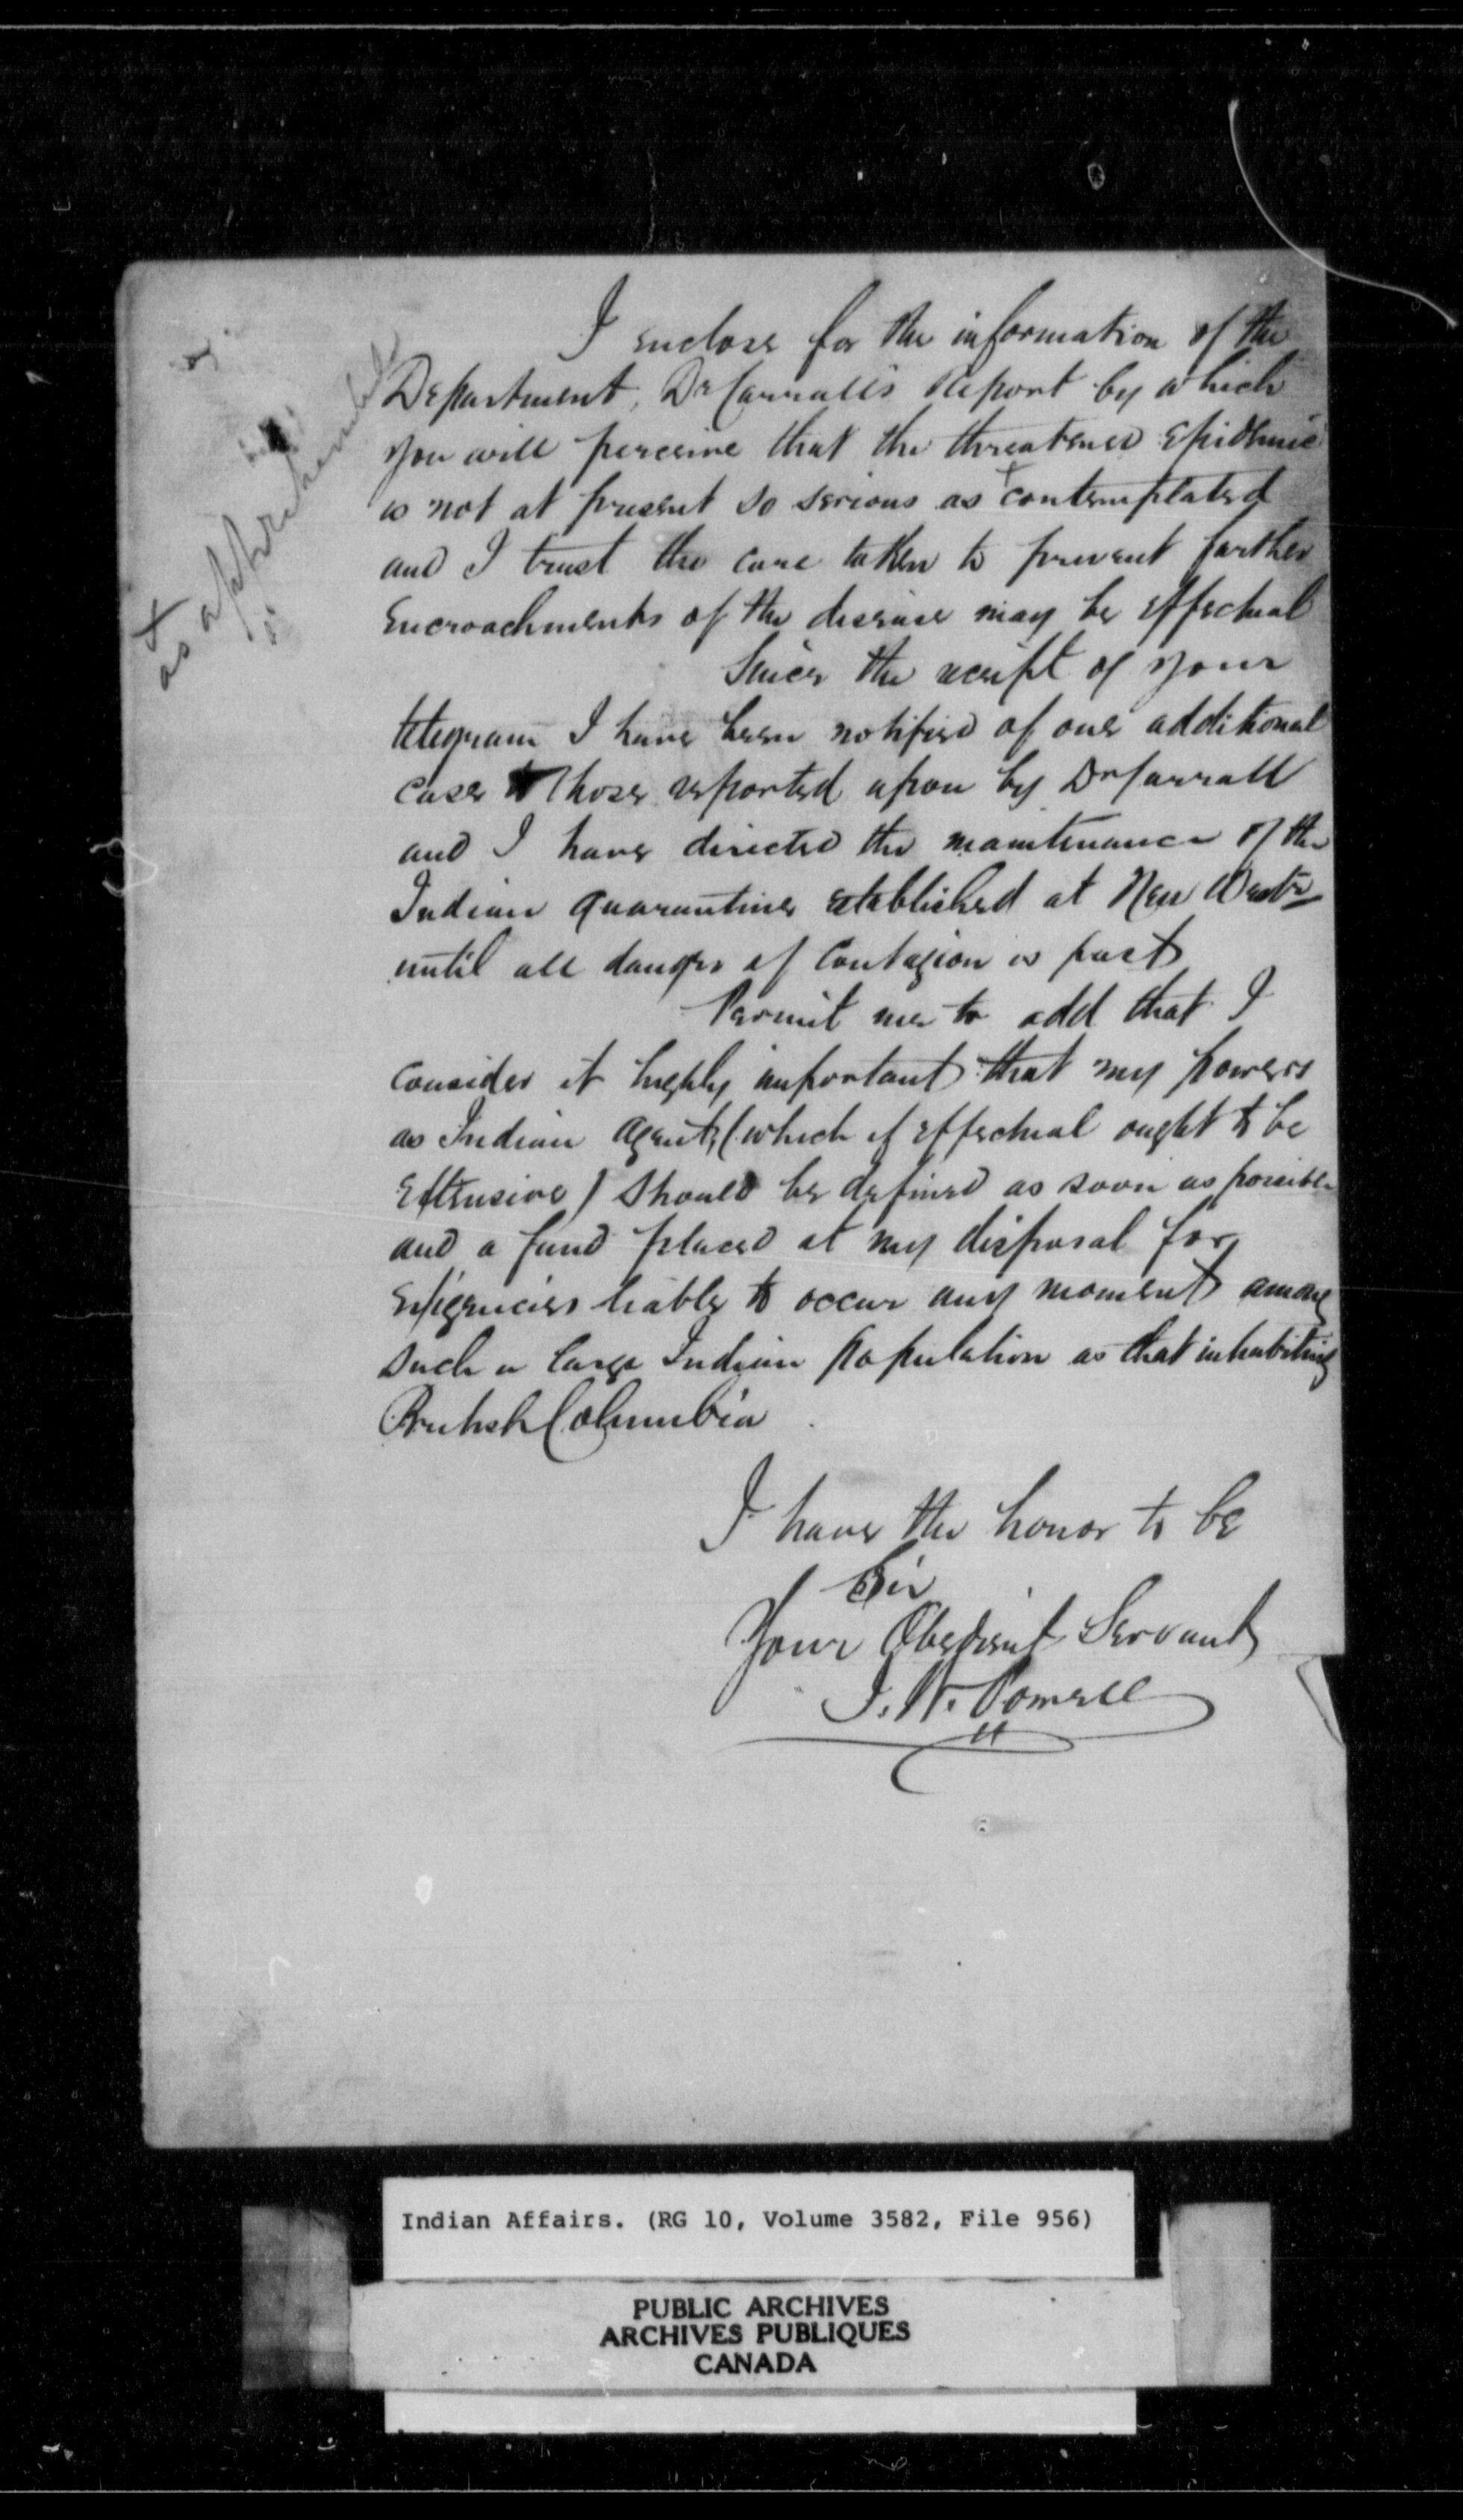 I enclose for the information of the
Department, Dr Carrall's Report by which
you will perceive that the threatened Epidemic
is not at present so serious as + contemplated
and I trust the care taken to prevent farther
Encroachments of the disease may be effectual
+
as apprehended
Since the receipt of your
telegram I have been notified of one additional
case to those reported upon by Dr Carrall
and I have directed the maintenance of the
Indian Quarantine established at New Westr
until all danger of Contagion is past
Permit me to add that I
Consider it highly important that my powers
as Indian Agent, (which if effectual ought to be
Extensive) should be defined as soon as possible
and a fund placed at my disposal for
Exigencies liable to occur any moment among
such a large Indian population as that inhabiting
British Columbia
I have the honor to be
Sir
Your Obedient Servant
I. W. Powell
Indian Affairs. (RG 10, Volume 3582, File 956)
PUBLIC ARCHIVES
ARCHIVES PUBLIQUES
CANADA